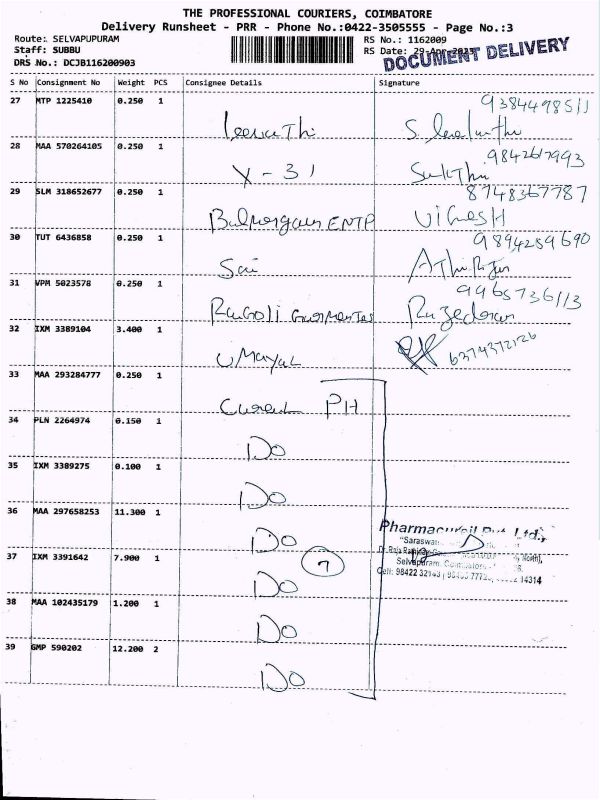 THE PROFESSIONAL COURIERS, COIMBATORE
Delivery Runsheet - PRR - Phone No.:0422-3505555 - Page No.:3
Route: SELVAPUPURAM RS No.: 1162009
Staff: SUBBU RS Date: 29-Apr-2023
DRS No.: DCJB116200903
DOCUMENT DELIVERY
S No Consignment No Weight PCS Consignee Details Signature
27 MTP 1225410 0.250 1
9384498511
28 MAA 570264105 0.250 1
X-31 9842617993
29 SLM 318652677 0.250 1
ENTP VIGNESH 8748367787
30 TUT 6436858 0.250 1
Sai 9894259690
31 VPM 5023578 0.250 1
9965736113
32 IXM 3389104 3.400 1
UMayal 6374372126
33 MAA 293284777 0.250 1
PH
34 PLN 2264974 0.150 1
Do
35 IXM 3389275 0.100 1
Do
36 MAA 297658253 11.300 1
Do
37 IXM 3391642 7.900 1
Do 7
38 MAA 102435179 1.200 1
Do
39 GMP 590202 12.200 2
Do
Ltd.,
Selvapuram, Coimbatore
Cell: 98422 32143
14314